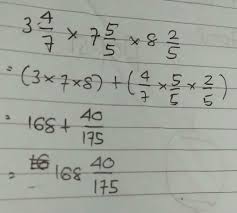 3 4/7 × 7 5/5 × 8 2/5
= (3×7×8) + (4/7 × 5/5 × 2/5)
= 168 + 40/175
= 168 40/175